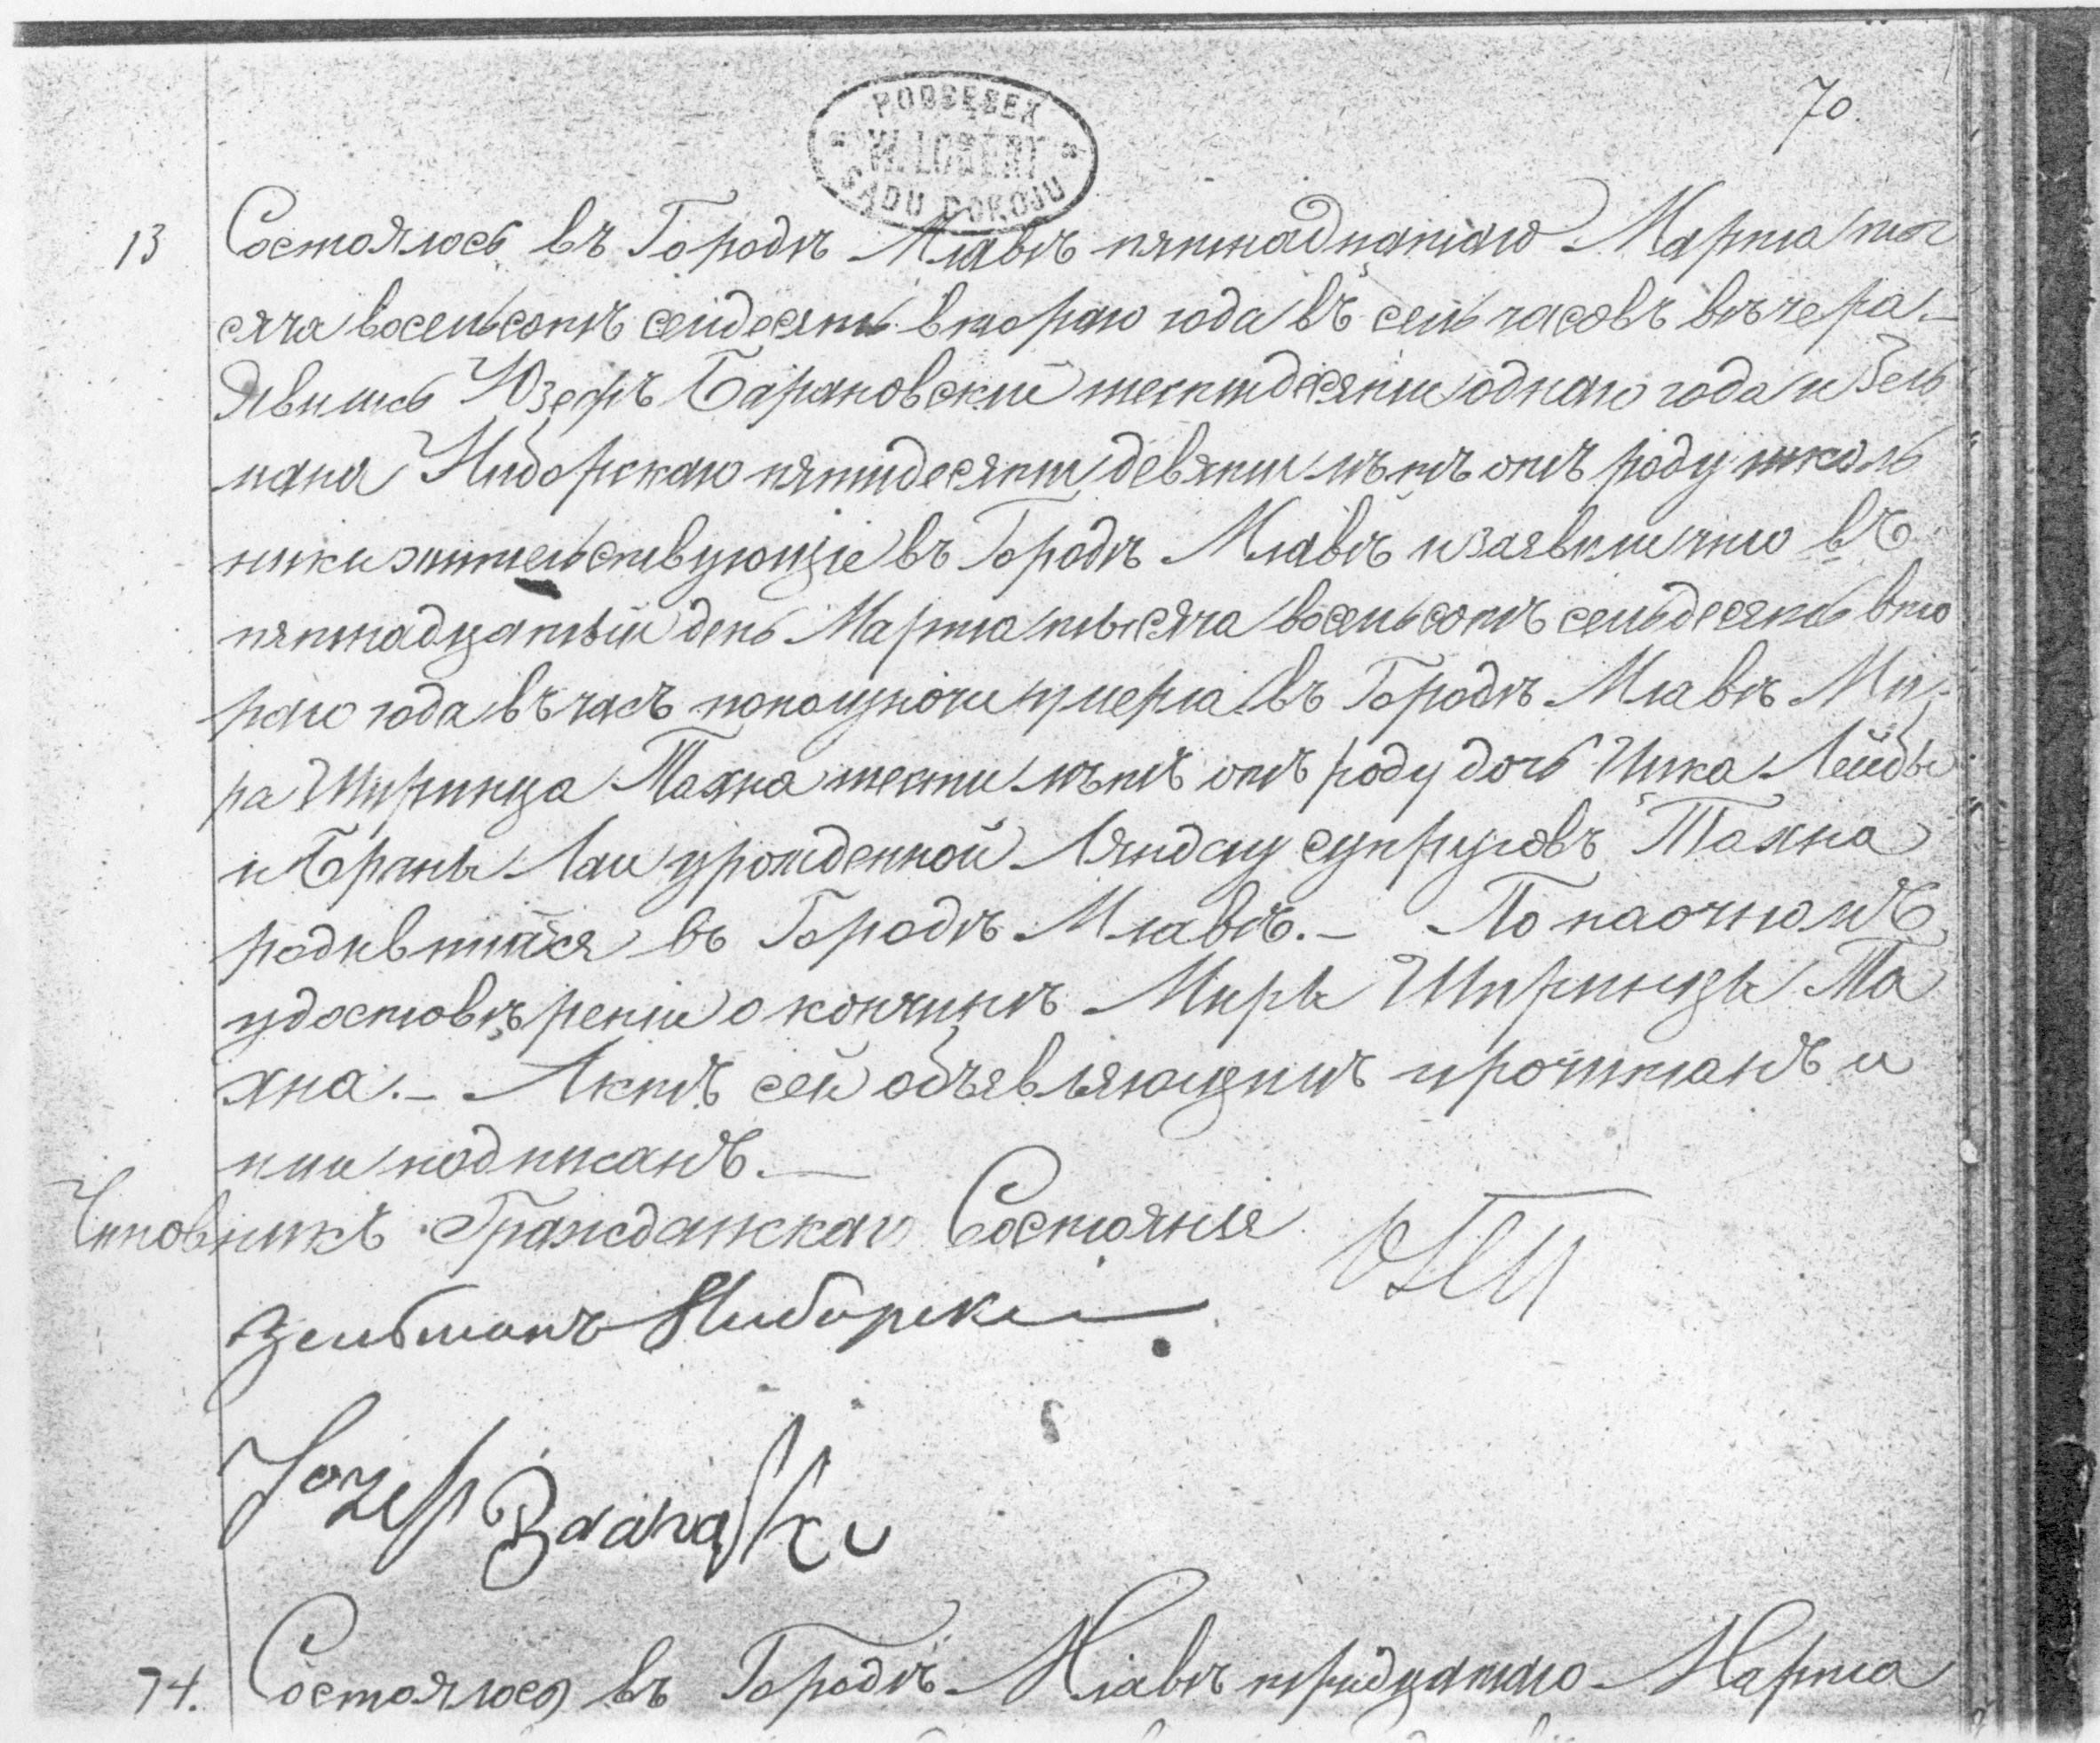 70.
PODSĘDEK
W. LOBERT
SĄDU POKOJU
13 Состоялось въ Городѣ Млавѣ пятнадцатаго Марта ты
сяча восемьсотъ семдесятъ втораго года въ семь часовъ вечера.-
Явились Юзефъ Барановскій шестидесяти одного года и Зель
мана Ниборскаго пятидесяти девяти лѣтъ отъ роду школь
ники жительствующіе въ Городѣ Млавѣ и заявили что въ
пятнадцатый день Марта тысяча восемьсотъ семьдесятъ вто
раго года въ часъ пополуночи умерла въ Городѣ Млавѣ Ми
ра Ширинца Тахна шести лѣтъ отъ роду дочь Ицка Лейбы
и Браны Лаи урожденной супруговъ Тахна
родившаяся въ Городѣ Млавѣ.- По наочномъ
удостовѣреніи о кончинѣ Миры Ширинцы Та
хна.- Актъ сей объявляющимъ прочитанъ и
ими подписанъ.-
Чиновникъ Гражданскаго Состоянія
Зельманъ Ниборски
Jozef Baranoski
74. Состоялось въ Городѣ Млавѣ тридцатаго Марта